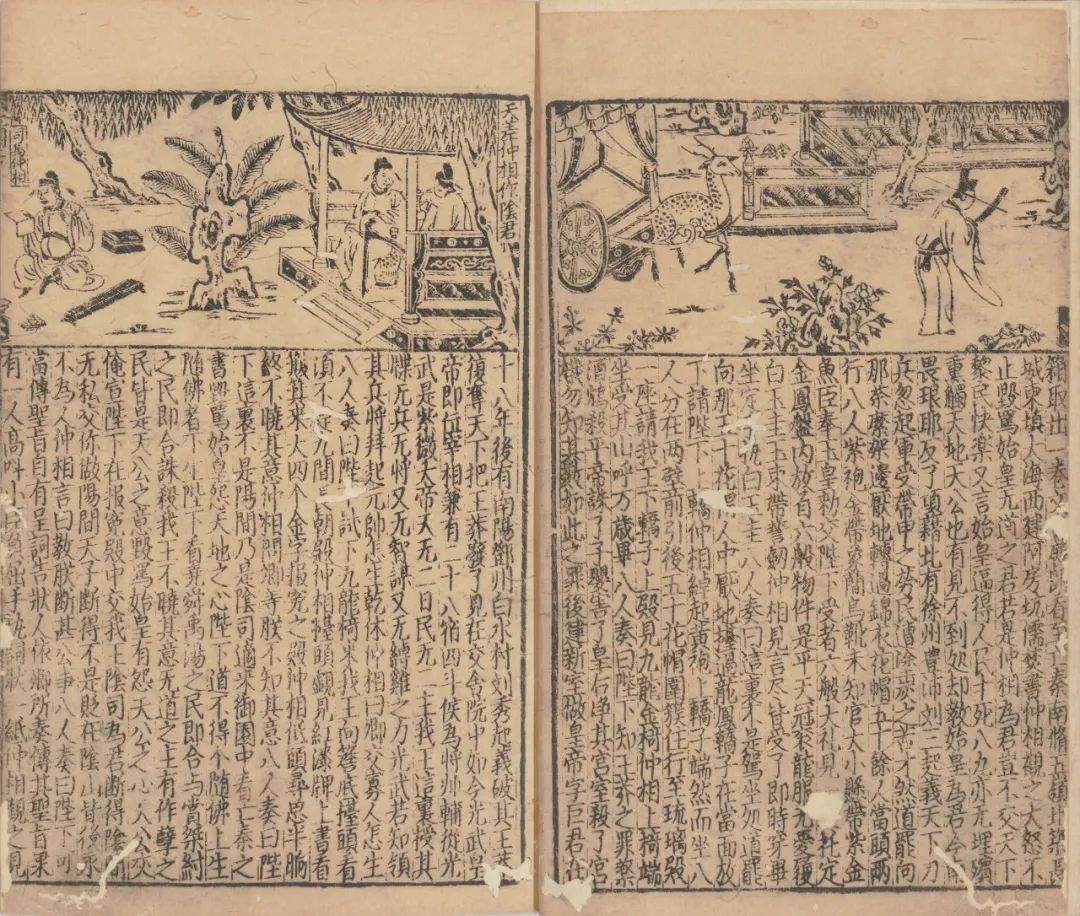 箱取出一卷文書看至亡秦南修五嶺北築長
城東填大海西建阿房坑儒焚書仲相觀之大怒不
止毀罵始皇无道之君若是仲相為君豈不交天下
黎民快樂又言始皇逼得人民十死八九亦无埋殯
重觸天地天公也有見不到処却教始皇為君今南
畏琅耶反了項籍北有徐州豐沛刘三起義天下刀
兵忽起軍受帶甲之勞民遭塗炭之苦才然道罷向
那荼架邊厭地轉過錦衣花帽五十餘人當頭兩
行八人紫袍金帶象簡烏靴未知官大小懸帶紫金
魚臣奉玉皇勅交陛下受者六般大礼見托定
金鳳盤內放着六般物件是平天冠衮龍服无憂履
白玉圭玉束帶誓劒仲相見言尽皆受了即時穿畢
坐定執白玉圭八人奏曰這里不是駕坐処道罷
向那五十花帽人中厭地擡過龍鳳轎子在當面放
下請陛下上轎仲相綽起黃袍上轎子端然而坐八
人分在兩壁前引後五十花帽圍簇住行至琉璃殿
一座請我王下轎子上殿見九龍金椅仲相上椅端
坐受其山呼万歲畢八人奏曰陛下知王莽之罪藥
酒鴆殺平帝誅了子嬰害了皇后淨其宮室殺了宮
娥勿知其數如此之罪後建新室做皇帝字巨君在
天差仲相作陰君
十八年後有南陽鄧州白水村刘秀起義破其王莽
復奪天下把王莽發了見在交舍院中如今光武皇
帝即位宰相兼有二十八宿四斗候為將帥輔從光
武是紫微大帝天无二日民无二主我王這裏授其
牒无兵无將又无智謀又无縛雞之力光武若知領
其兵將拜起元帥怎生乾休仲相曰卿交寡人怎生
八人奏曰陛下試下九龍椅來我王向簷底擡頭看
須不是凡間長朝殿仲相擡頭覷見紅漆牌上書着
簸箕來大四个金字報冤之殿仲相低頭尋思半晌
終不曉其意仲相問卿等朕不知其意八人奏曰陛
下這裏不是陽間乃是陰司適來御園中看亡秦之
書毀罵始皇怨天地之心陛下道不得个随佛上生
随佛者下生陛下看堯舜禹湯之民即合与賞桀紂
之民即合誅殺我王不曉其意无道之主有作孽之
民皆是天公之意毀罵始皇有怨天公之心天公交
俺宣陛下在報冤殿中交我王陰司為君斷得陰間
无私交你做陽間天子斷得不是貶在陰山背後永
不為人仲相言曰教朕斷甚公事八人奏曰陛下可
當傳聖旨自有呈詞告狀人依卿所奏傳其聖旨果
有一人高叫小臣負屈手執詞狀一紙仲相觀之見